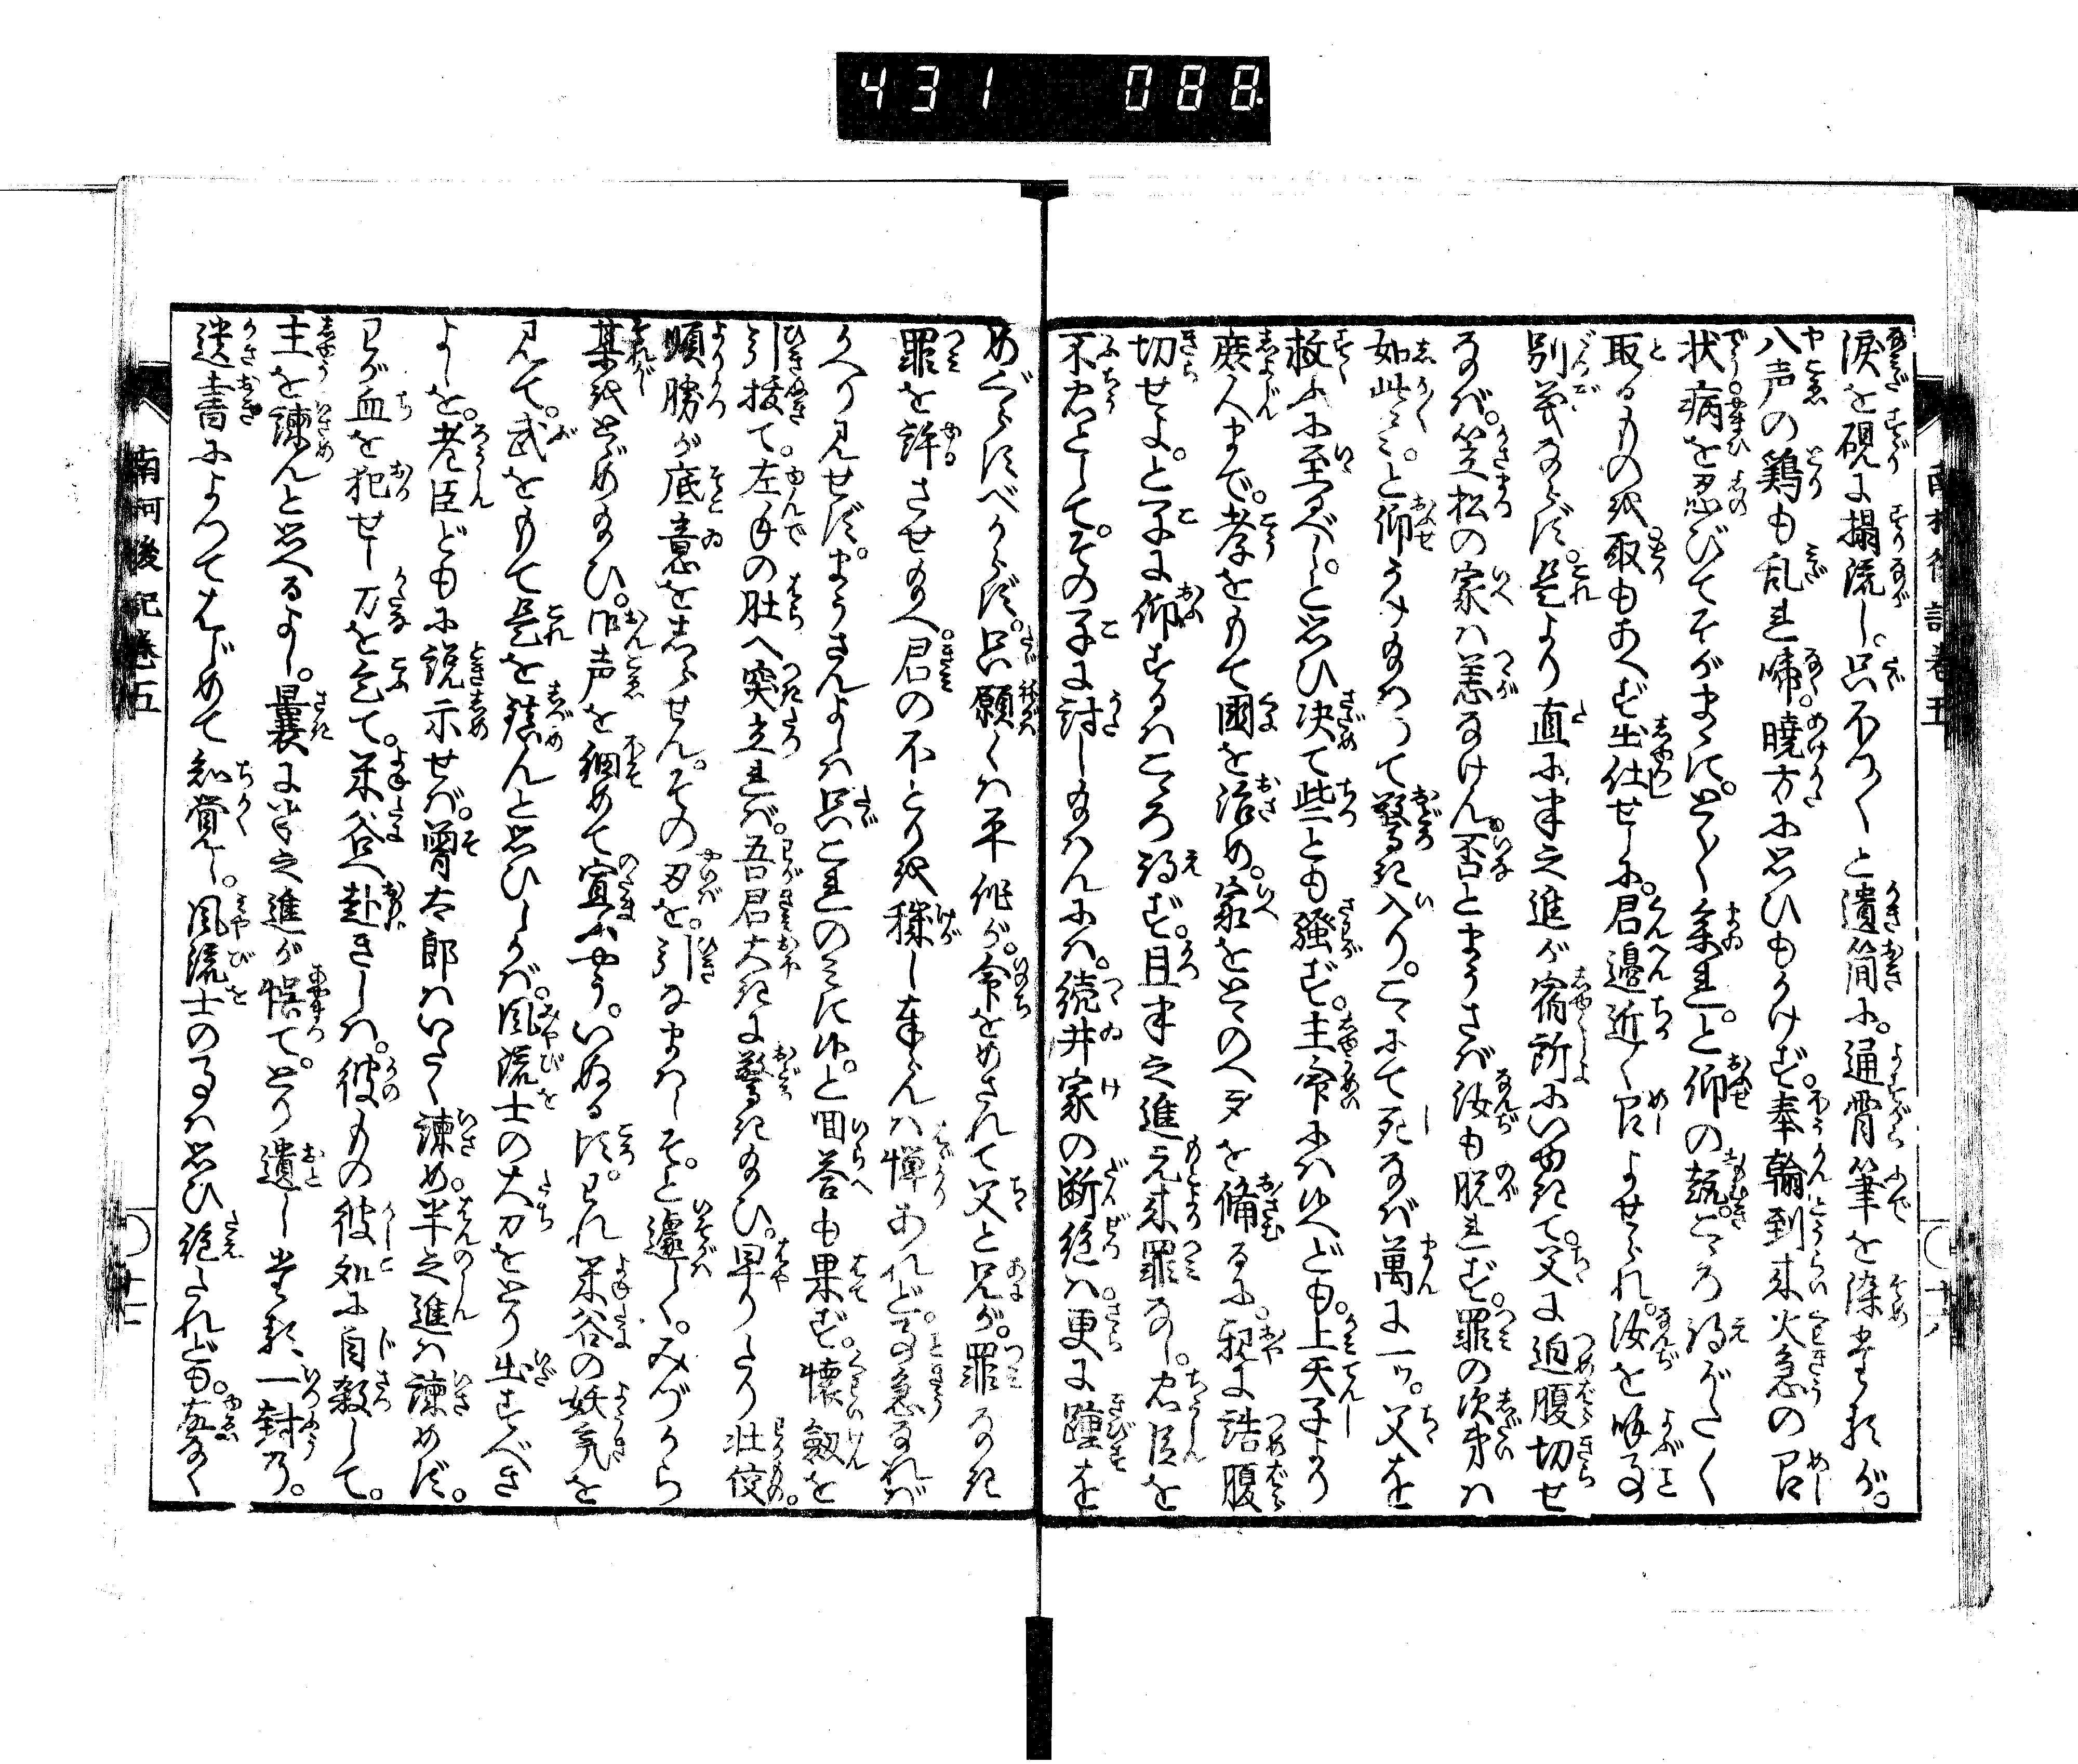 431 088
涙を硯に揚流し。只不覚くと遺簡に。通宵筆を染しが。
八声の鶏も乱れ啼。暁方に思ひもかけず。奉翰到来火急の召
状病を忍びてそがまゝに。とく参れ。と仰の趣こゝろ得がたく
取るもの も取もあへず出仕せしに。君邊近く召よせられ。汝を呼る事
別義ならず。是より直に半之進が宿所にいゆきて。父に迫腹切せ
なば。笠松の家は恙なけん。否とまうさば汝も脱れず。罪の次第は
如此〻〻。と仰うけ給はつて驚き入り。こゝにて死なば萬に一ツ。父を
救ふに至るべし。と思ひ决て些とも騒ず。主命にはいへども。上天子より
庶人まで。孝をもて國を治め。家をとゝのへ身を脩るに。親に詰腹
切せよ。と子に仰するはこゝろ得ず。且半之進元来罪なし。忠臣を
不忠として。その子に討し給はんには。続井家の断絶は。更に踵を
めぐらすべからず。只願くは平作が。命をめされて父と兄が。罪なき
罪を許させ給へ。君の不とりを穢し奉らんは憚あれど。事急なれば
かへり見せず。まうさんよしは只これのみに候。と回答も果ず。懐劔を
引抜て。左手の肚へ突立れば。吾君大きに驚き給ひ。早りたり壮佼。
順勝が底意をしらせん。その刃を。引なまはしそ。と遽しく。みづから
某をとゞめ給ひ。御声を細めて宣ふやう。いぬる頃。われ米谷の妖気を
見て。武をもて是を鎮んと思ひしかば。風流士の大刀をとり出すべき
よしを。老臣どもに説示せば。曽太郎はいたく諫め。半之進は諫めず。
わが血を犯せし刀を乞て。米谷へ赴きしは。彼もの彼処に自殺して。
主を諫んと思へるよし。曩に半之進が悞て。とり遺しゝ一封の。
遺書によつてはじめて知覚し。風流士の事は思ひ絶たれども。故なく
南柯後記巻五
十八
南柯後記巻五